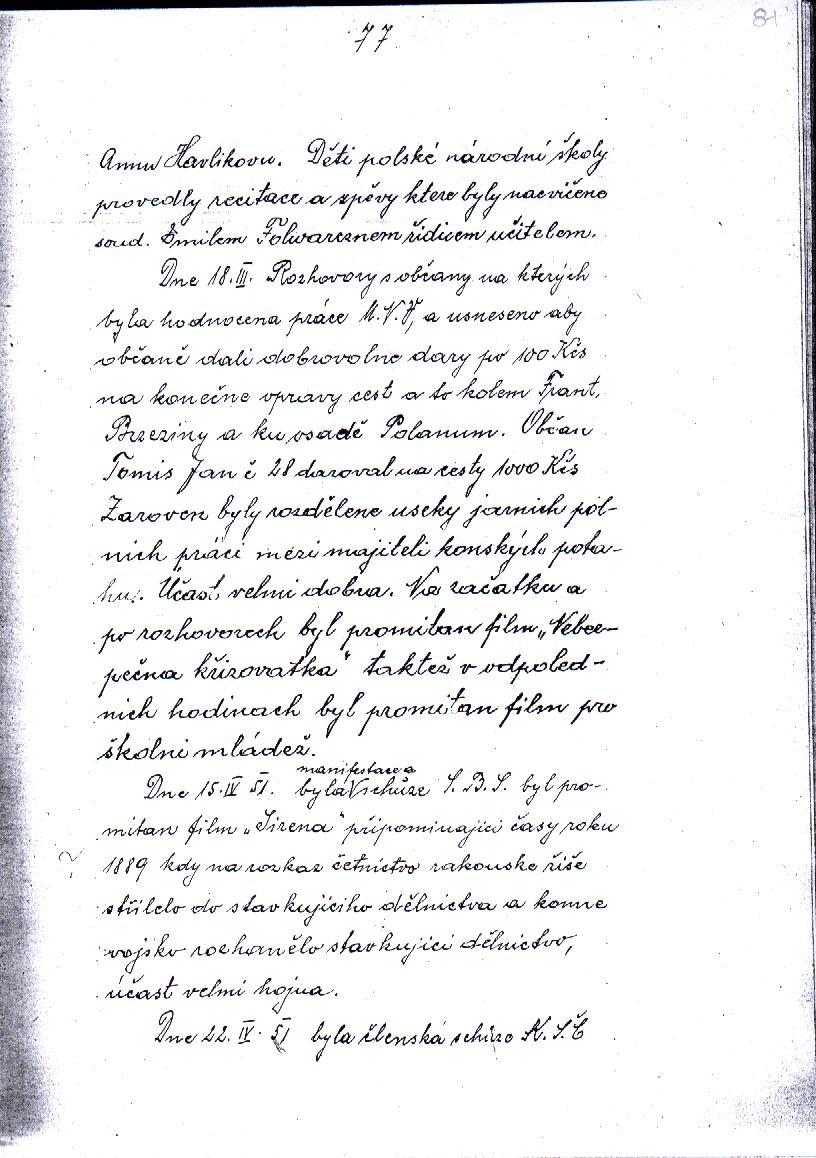 77
81
Annu Havlikovu. Děti polské národní školy
provedly recitace a zpěvy ktere byly nacvičeno
soud. Emilem Folwarcznem řidicem učitelem.
Dne 18.III. Rozhovory s občany na kterých
byla hodnocena práce M.V.V, a usneseno aby
občaně dali dobrovolne dary po 100 Kčs
na konečne opravy cest a to kolem Frant.
Brzeziny a ku osadě Polanum. Občan
Tomis Jan č 28 daroval na cesty 1000 Kčs
Zaroven byly rozdělene useky jarnich pol-
nich práci mezi majiteli konských pota-
hu. Učast velmi dobra. Na začatku a
po rozhovorech byl promitan film „Nebez-
pečna křizovatka" taktež v odpoled-
nich hodinach byl promitan film pro
školni mládež.
manifestace a
Dne 15.IV 51. byla schůze S.B.S. byl pro-
mitan film „Sirena" připominajici časy roku
1889 kdy na rozkaz četnictvo rakouske řiše
střilelo do stavkujiciho dělnictva a konne
vojsko rozhanělo stavkujici dělnictvo,
účast velmi hojna.
Dne 22.IV. 51 byla členská schůze K.S.Č